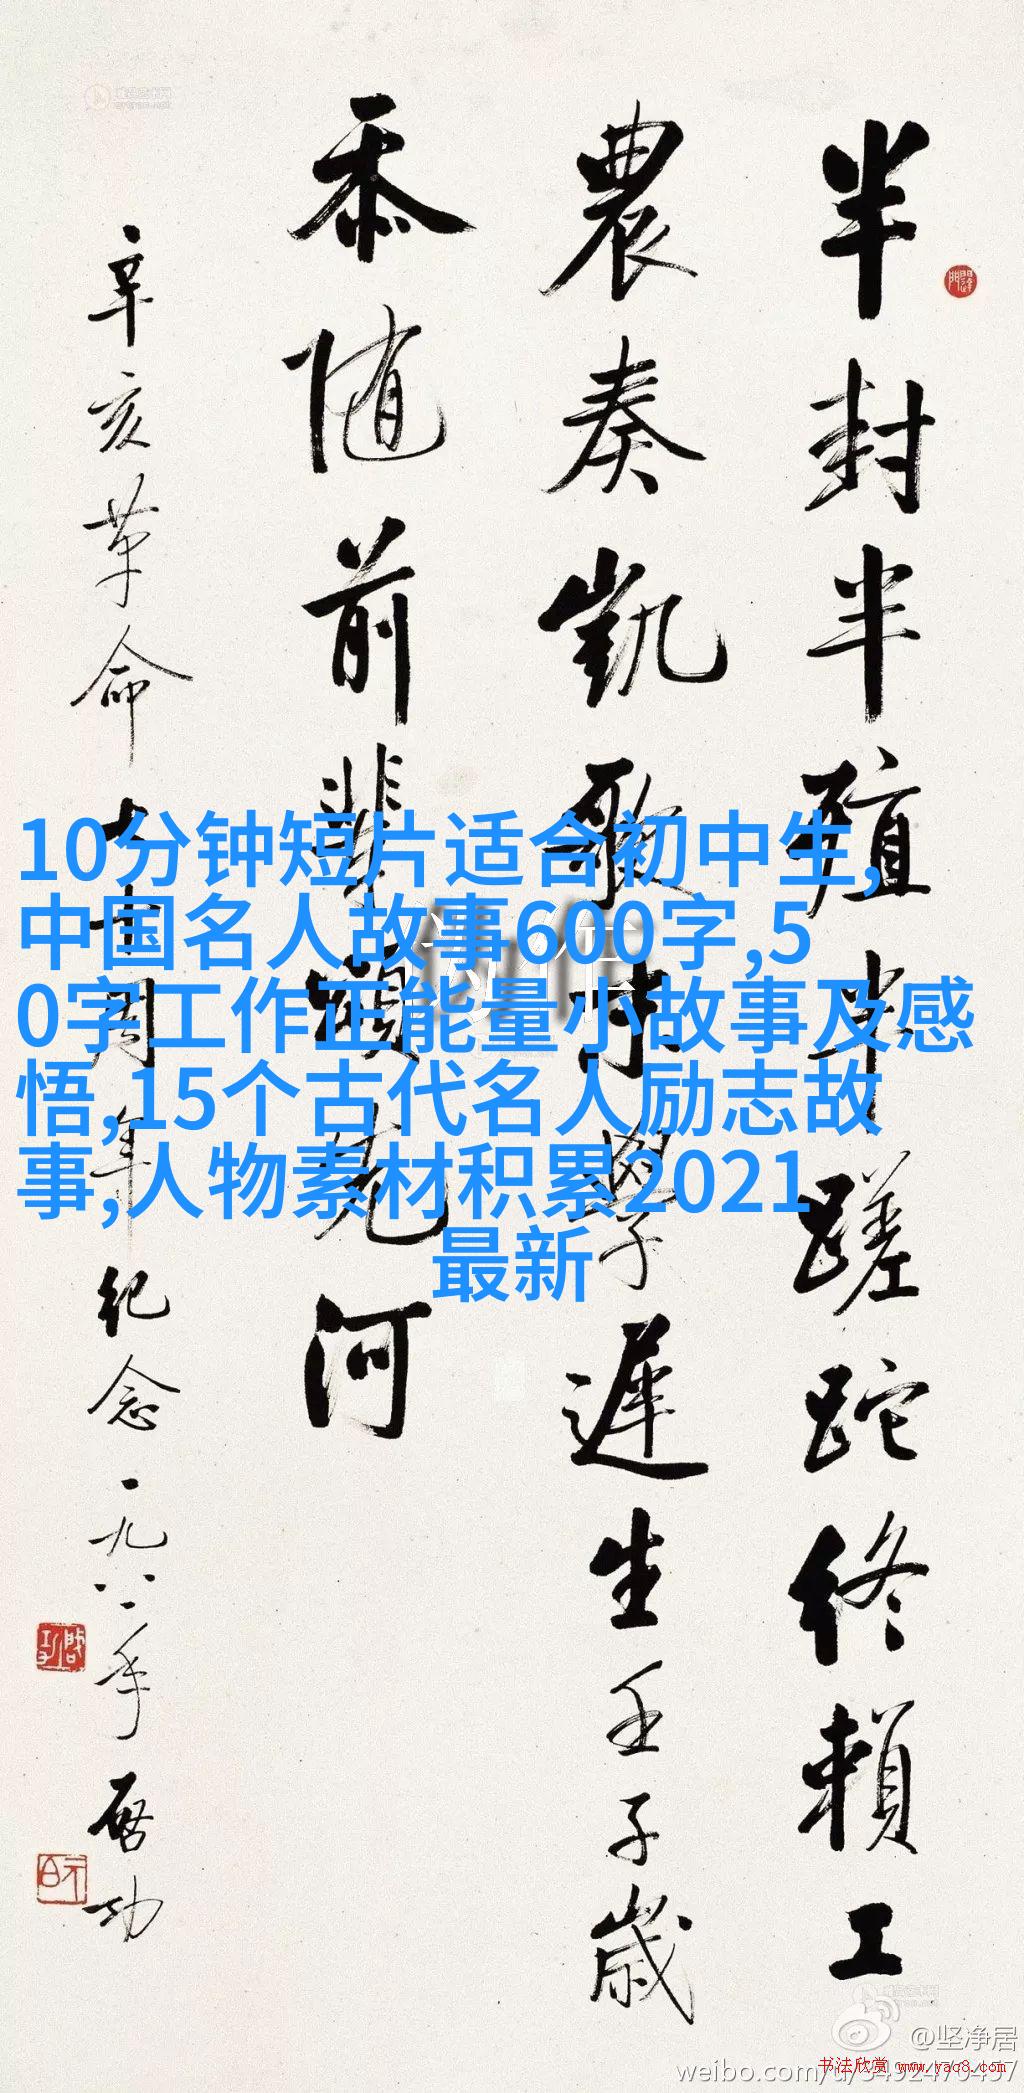 半封半殖半蹉跎终賴工
農奏凱歌末學遲生壬子歲
忝随前輩頌先河
辛亥革命七十周年纪念一九八一年启功
10分钟短片适合初中生,
中国名人故事600字,5
0字工作正能量小故事及感
悟,15个古代名人励志故
事,人物素材积累2021
最新
@坚净居
书法欣赏 www.yac8.com
weibo.com/u/3492470437